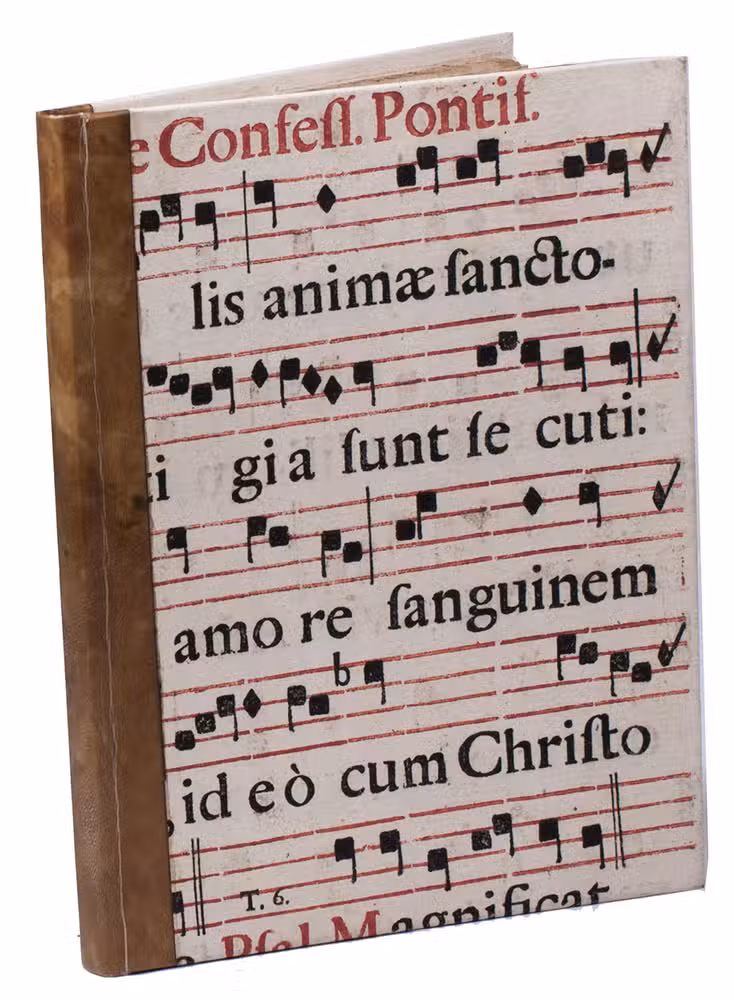 e Confeſſ. Pontif.
lis animæ ſancto-
ti gia ſunt ſe cuti:
amo re ſanguinem
b
, id eò cum Chriſto
T. 6.
Pſal. Magnificat